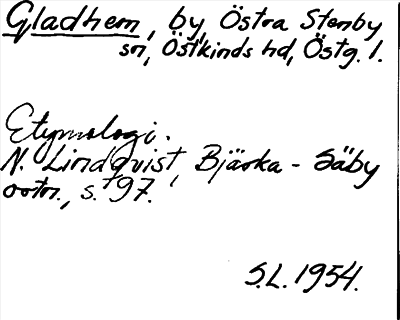 Gladhem, by, Östra Stenby
sn, Östkinds hd, Östg. l.
Etymologi.
N. Lindqvist, Bjärka - Säby
ortn., s. 97.
S.L. 1954.